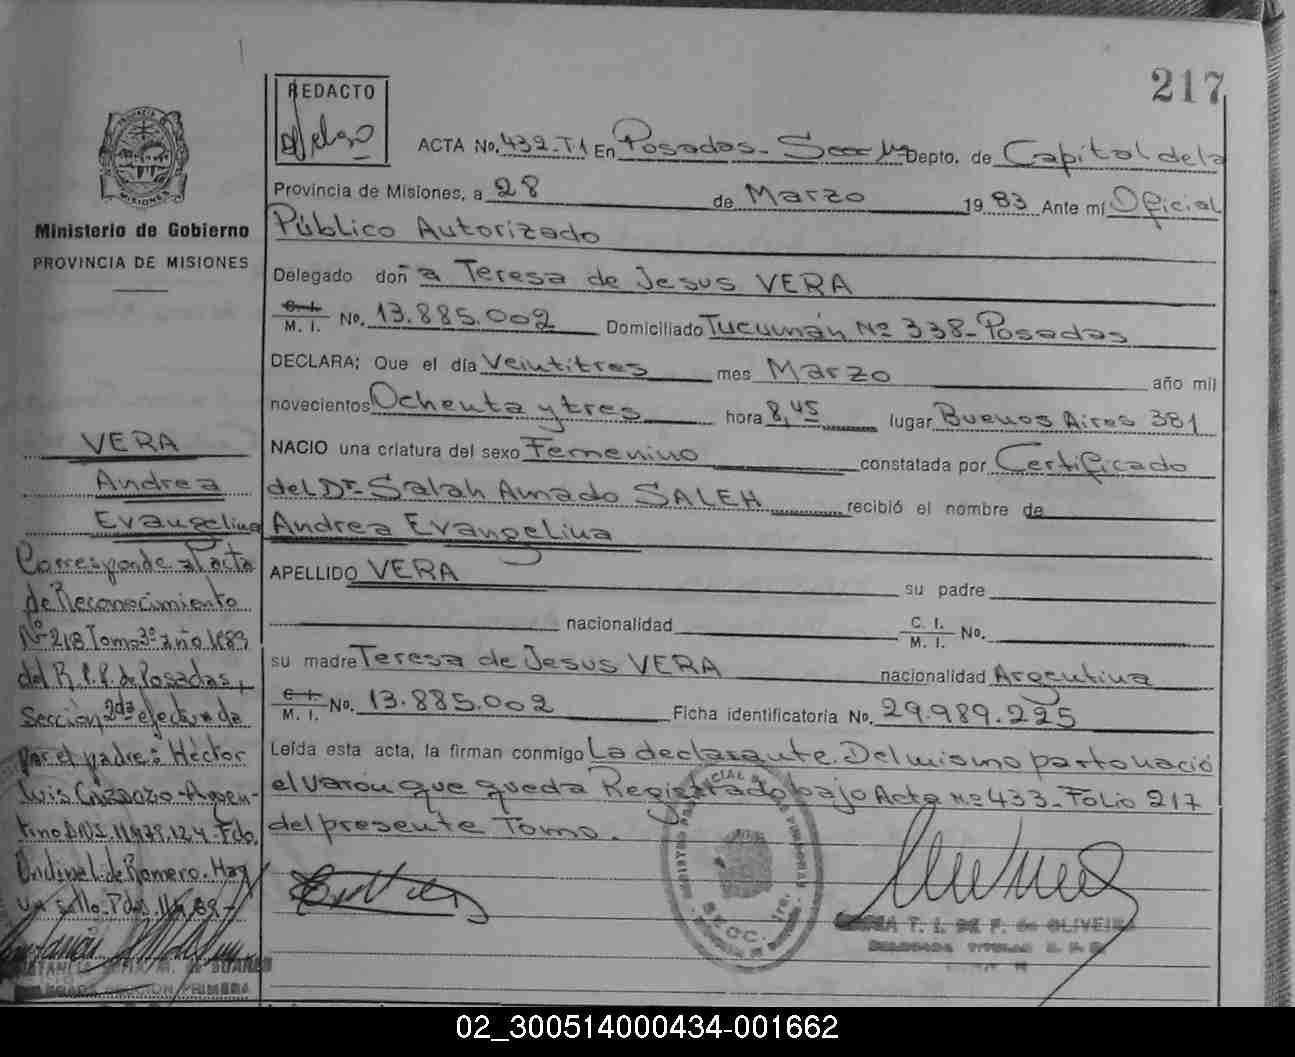 217
REDACTO
ACTA No. 432-T1 En Posadas- Secc 1ra Depto. de Capital de la
Provincia de Misiones, a 28 de Marzo 1983 Ante mí Oficial
Público Autorizado
Delegado doña Teresa de Jesus VERA
C. I.
M. I. No. 13.885.002 Domiciliado Tucumán Nº 338-Posadas
DECLARA; Que el día Veintitres mes Marzo año mil
novecientos Ochenta y tres hora 8,45 lugar Buenos Aires 381
NACIO una criatura del sexo Femenino constatada por Certificado
del Dr- Salah Amado SALEH recibió el nombre de
Andrea Evangelina
APELLIDO VERA su padre
nacionalidad C. I.
M. I. No.
su madre Teresa de Jesus VERA nacionalidad Argentina
C. I.
M. I. No. 13.885.002 Ficha identificatoria No. 29.989.225
Leída esta acta, la firman conmigo La declarante. Del mismo parto nació
el varón que queda Registrado bajo Acta Nº 433-Folio 217
del presente Tomo.
T. I. DE F. de OLIVEIRA
DELEGADA TITULAR
PROVINCIA DE
MISIONES
Ministerio de Gobierno
PROVINCIA DE MISIONES
VERA
Andrea
Evangelina
Corresponde al acta
de Reconocimiento
Nº 218 Tomo 3º año 1989
del R.P.P. de Posadas,
Sección 2da efectuada
por el padre: Héctor
Luis - Argen-
tino DNI. 11.978.124. Fdo.
L. de Romero. Hay
un sello. Pdas.
DE SUAREZ
SECCION PRIMERA
02_300514000434-001662